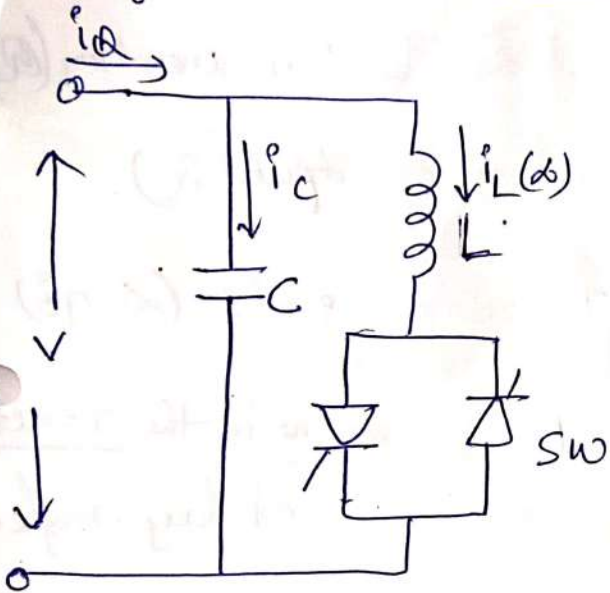 iQ
ic
iL(α)
L
V
C
SW